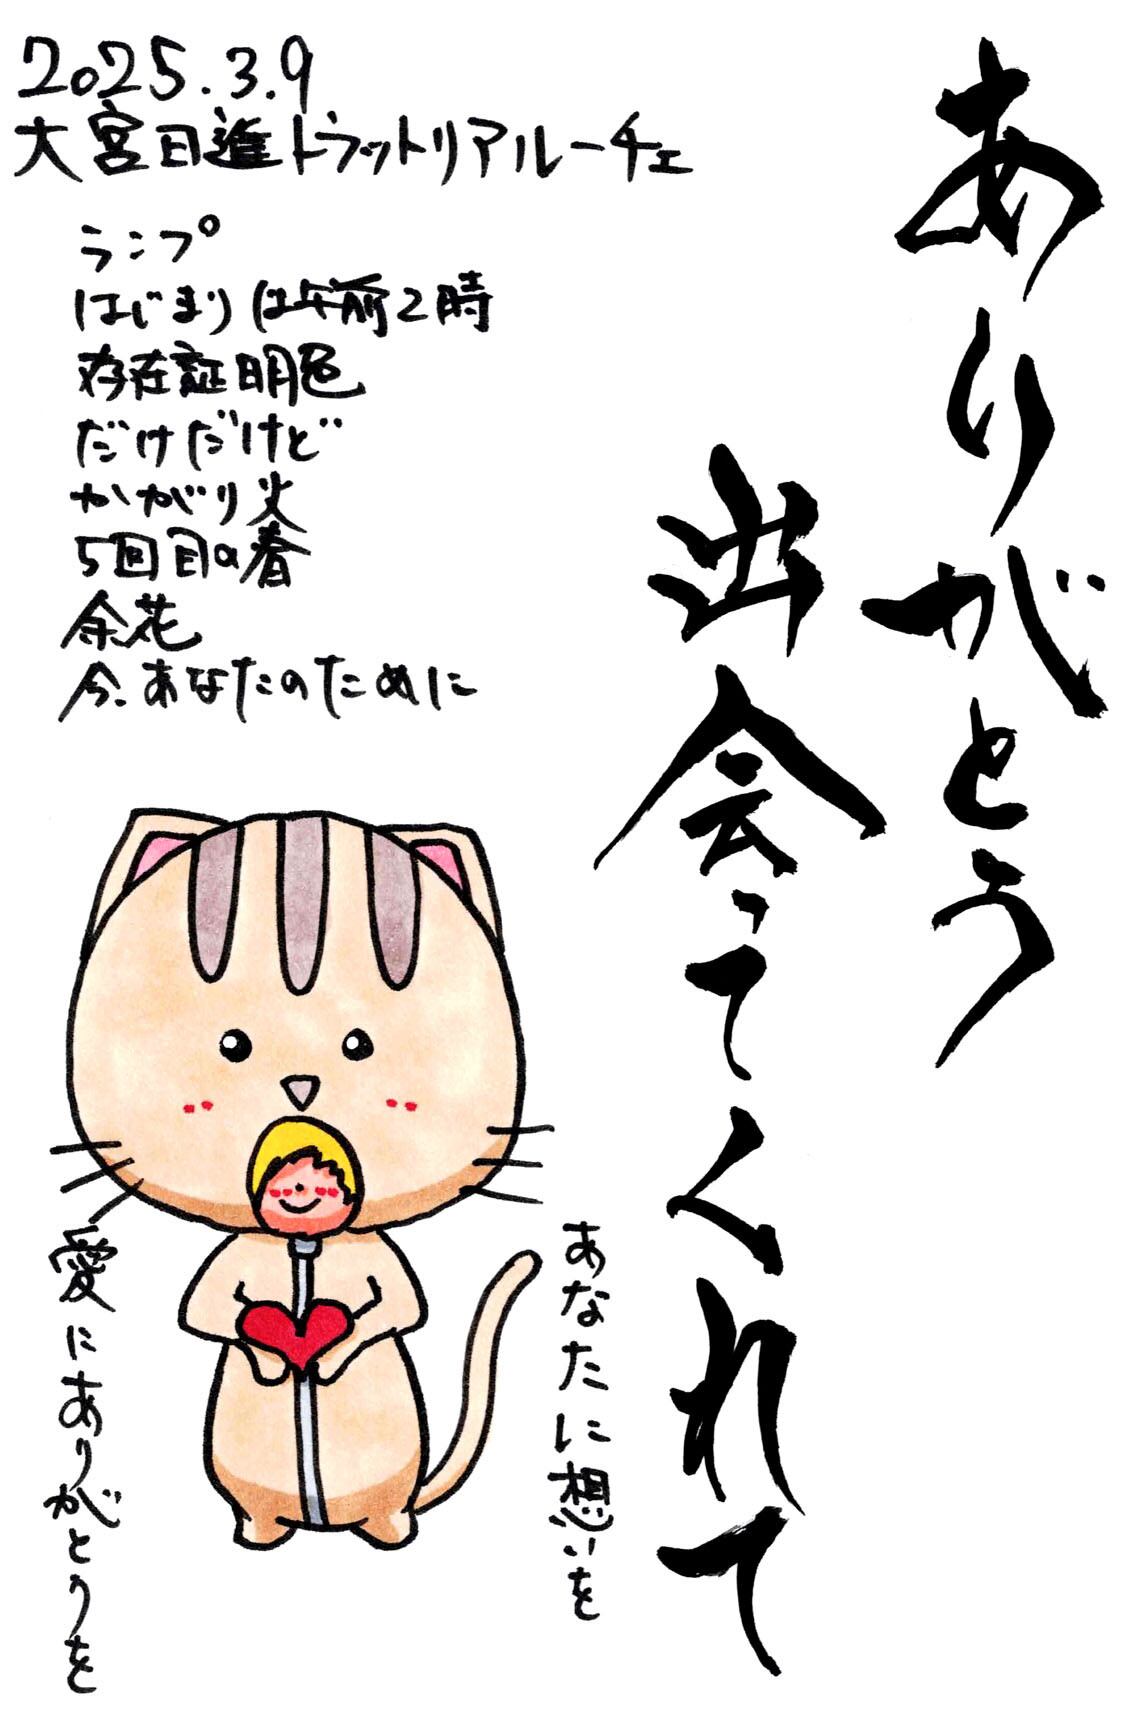 2025.3.9
大宮日進トラットリアルーチェ
ランプ
はじまりは午前2時
存在証明色
だけだけど
かがり火
5回目の春
余花
今、あなたのために
ありがとう
出会ってくれて
あなたに想いを
愛にありがとうを